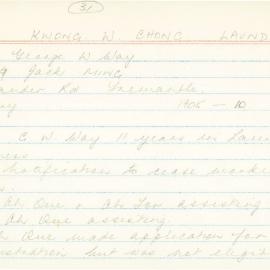 31
KWONG. W. CHONG. LAUND
George W Way
9 Jack MING
ander Rd Fremantle.
ay 1905 - 10
C W Way 11 years in Laun
ness
notification to cease worki
s.
Ah One & Ah Foo assisting
Ah One assisting.
h One made application for
but was not eligib